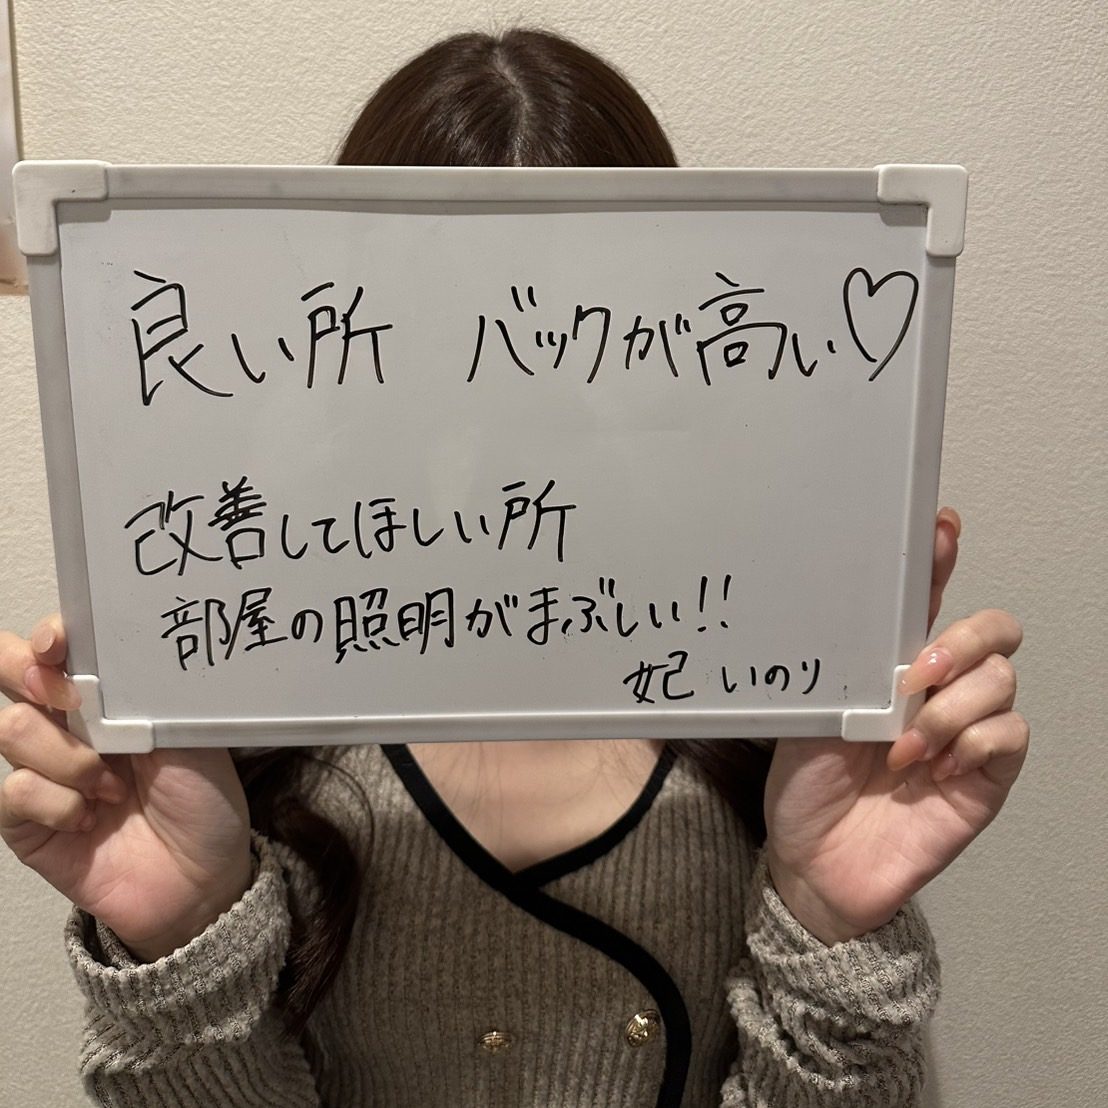 良い所 バックが高い♡
改善してほしい所
部屋の照明がまぶしい!!
妃 いのり